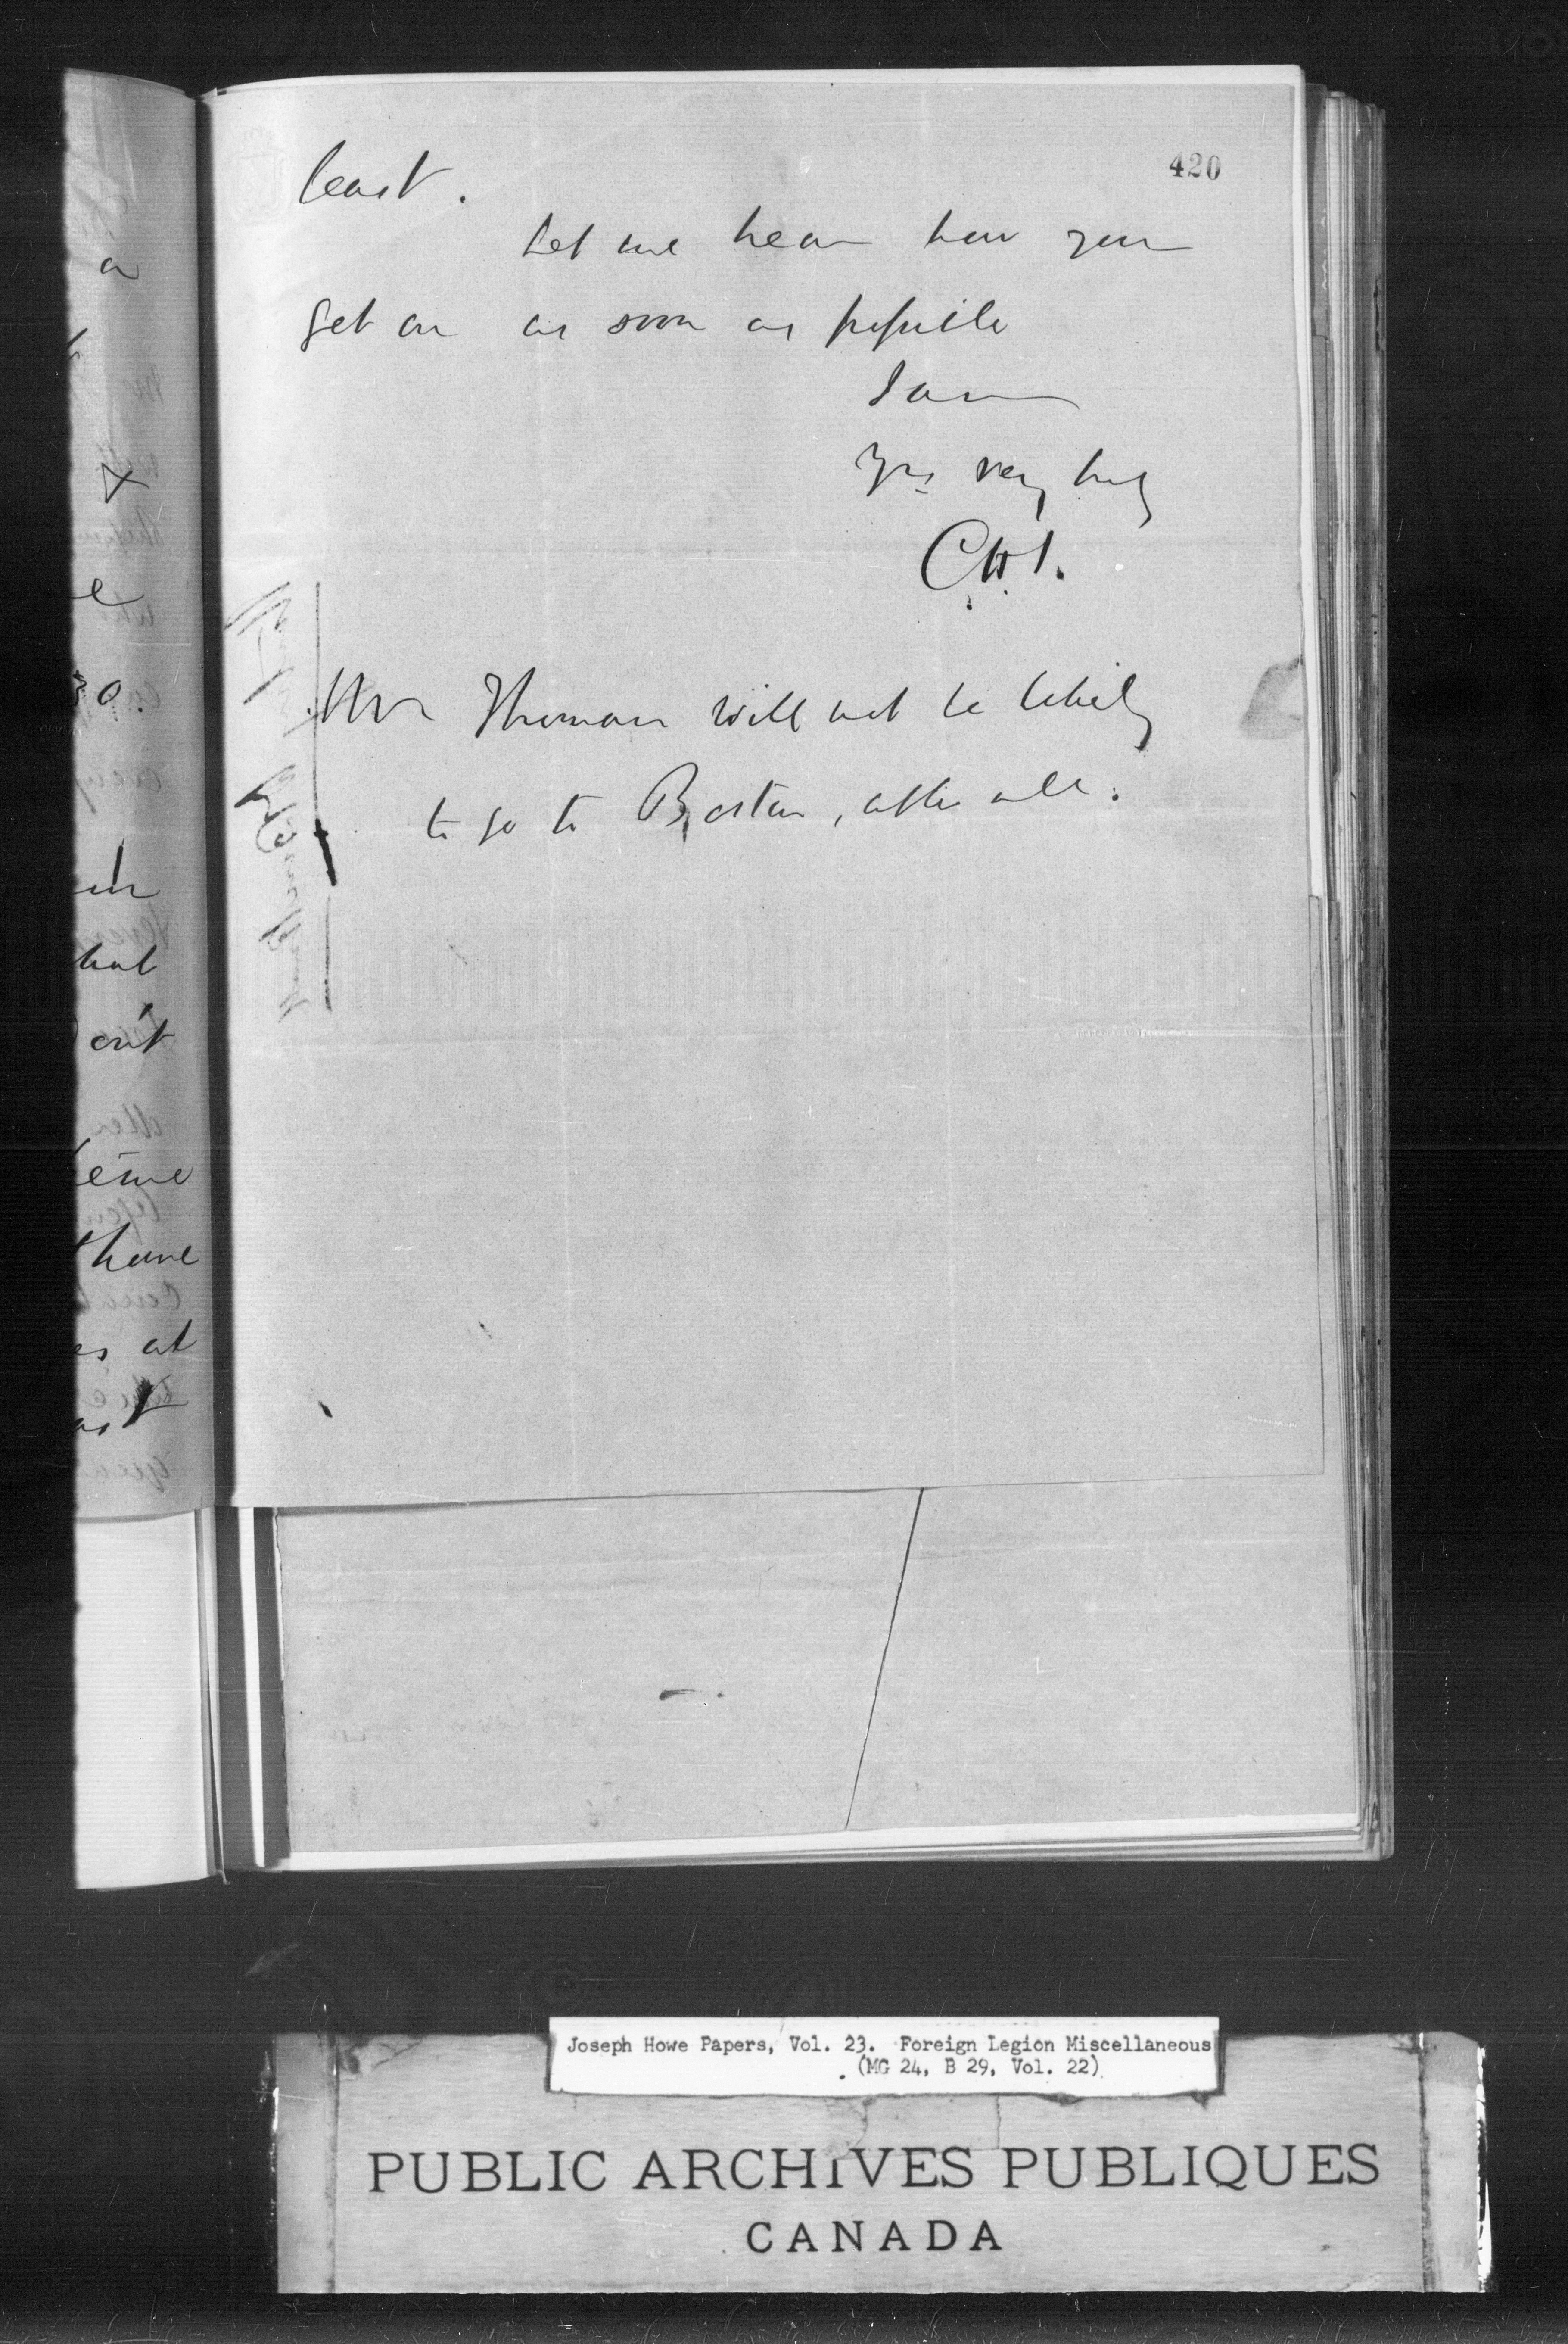 420
least.
Let me hear how you
get on as soon as possible
I am
Yrs very truly
Mr Thomas will not be likely
to go to Boston, after all.
a
e
hat
on't
have
es at
Joseph Howe Papers, Vol. 23. Foreign Legion Miscellaneous
(MG 24, B 29, Vol. 22)
PUBLIC ARCHIVES PUBLIQUES
CANADA